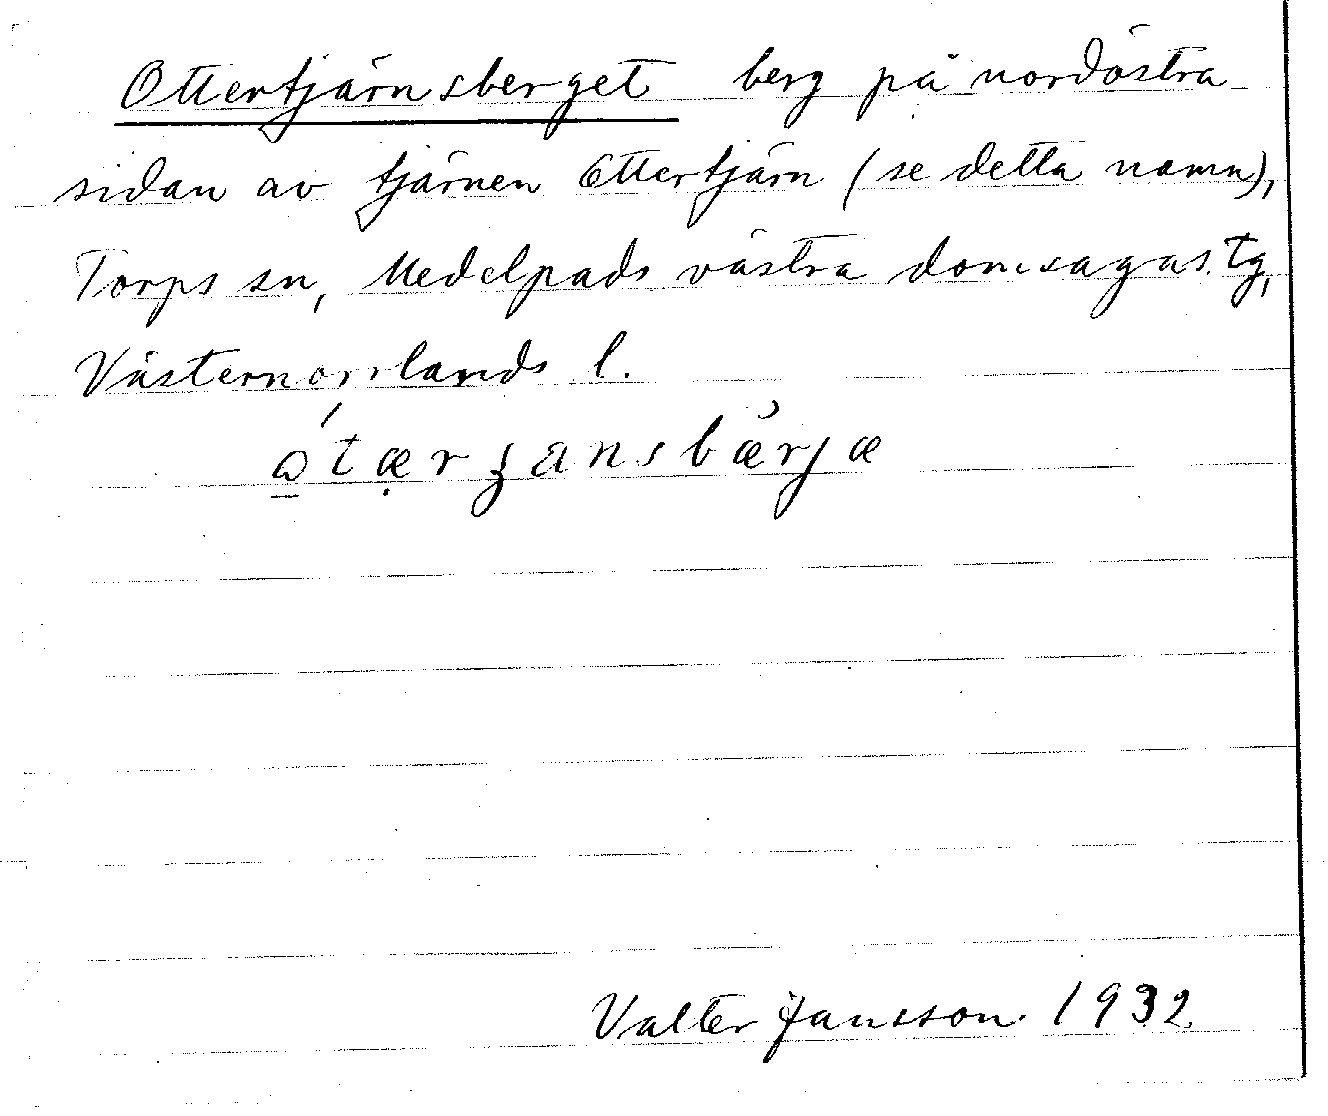 Ottertjärnsberget berg på nordöstra
sidan av tjärnen Ottertjärn (se detta namn),
Torps sn, Medelpads västra domsagas tg,
Västernorrlands l.
Valter Jansson 1932